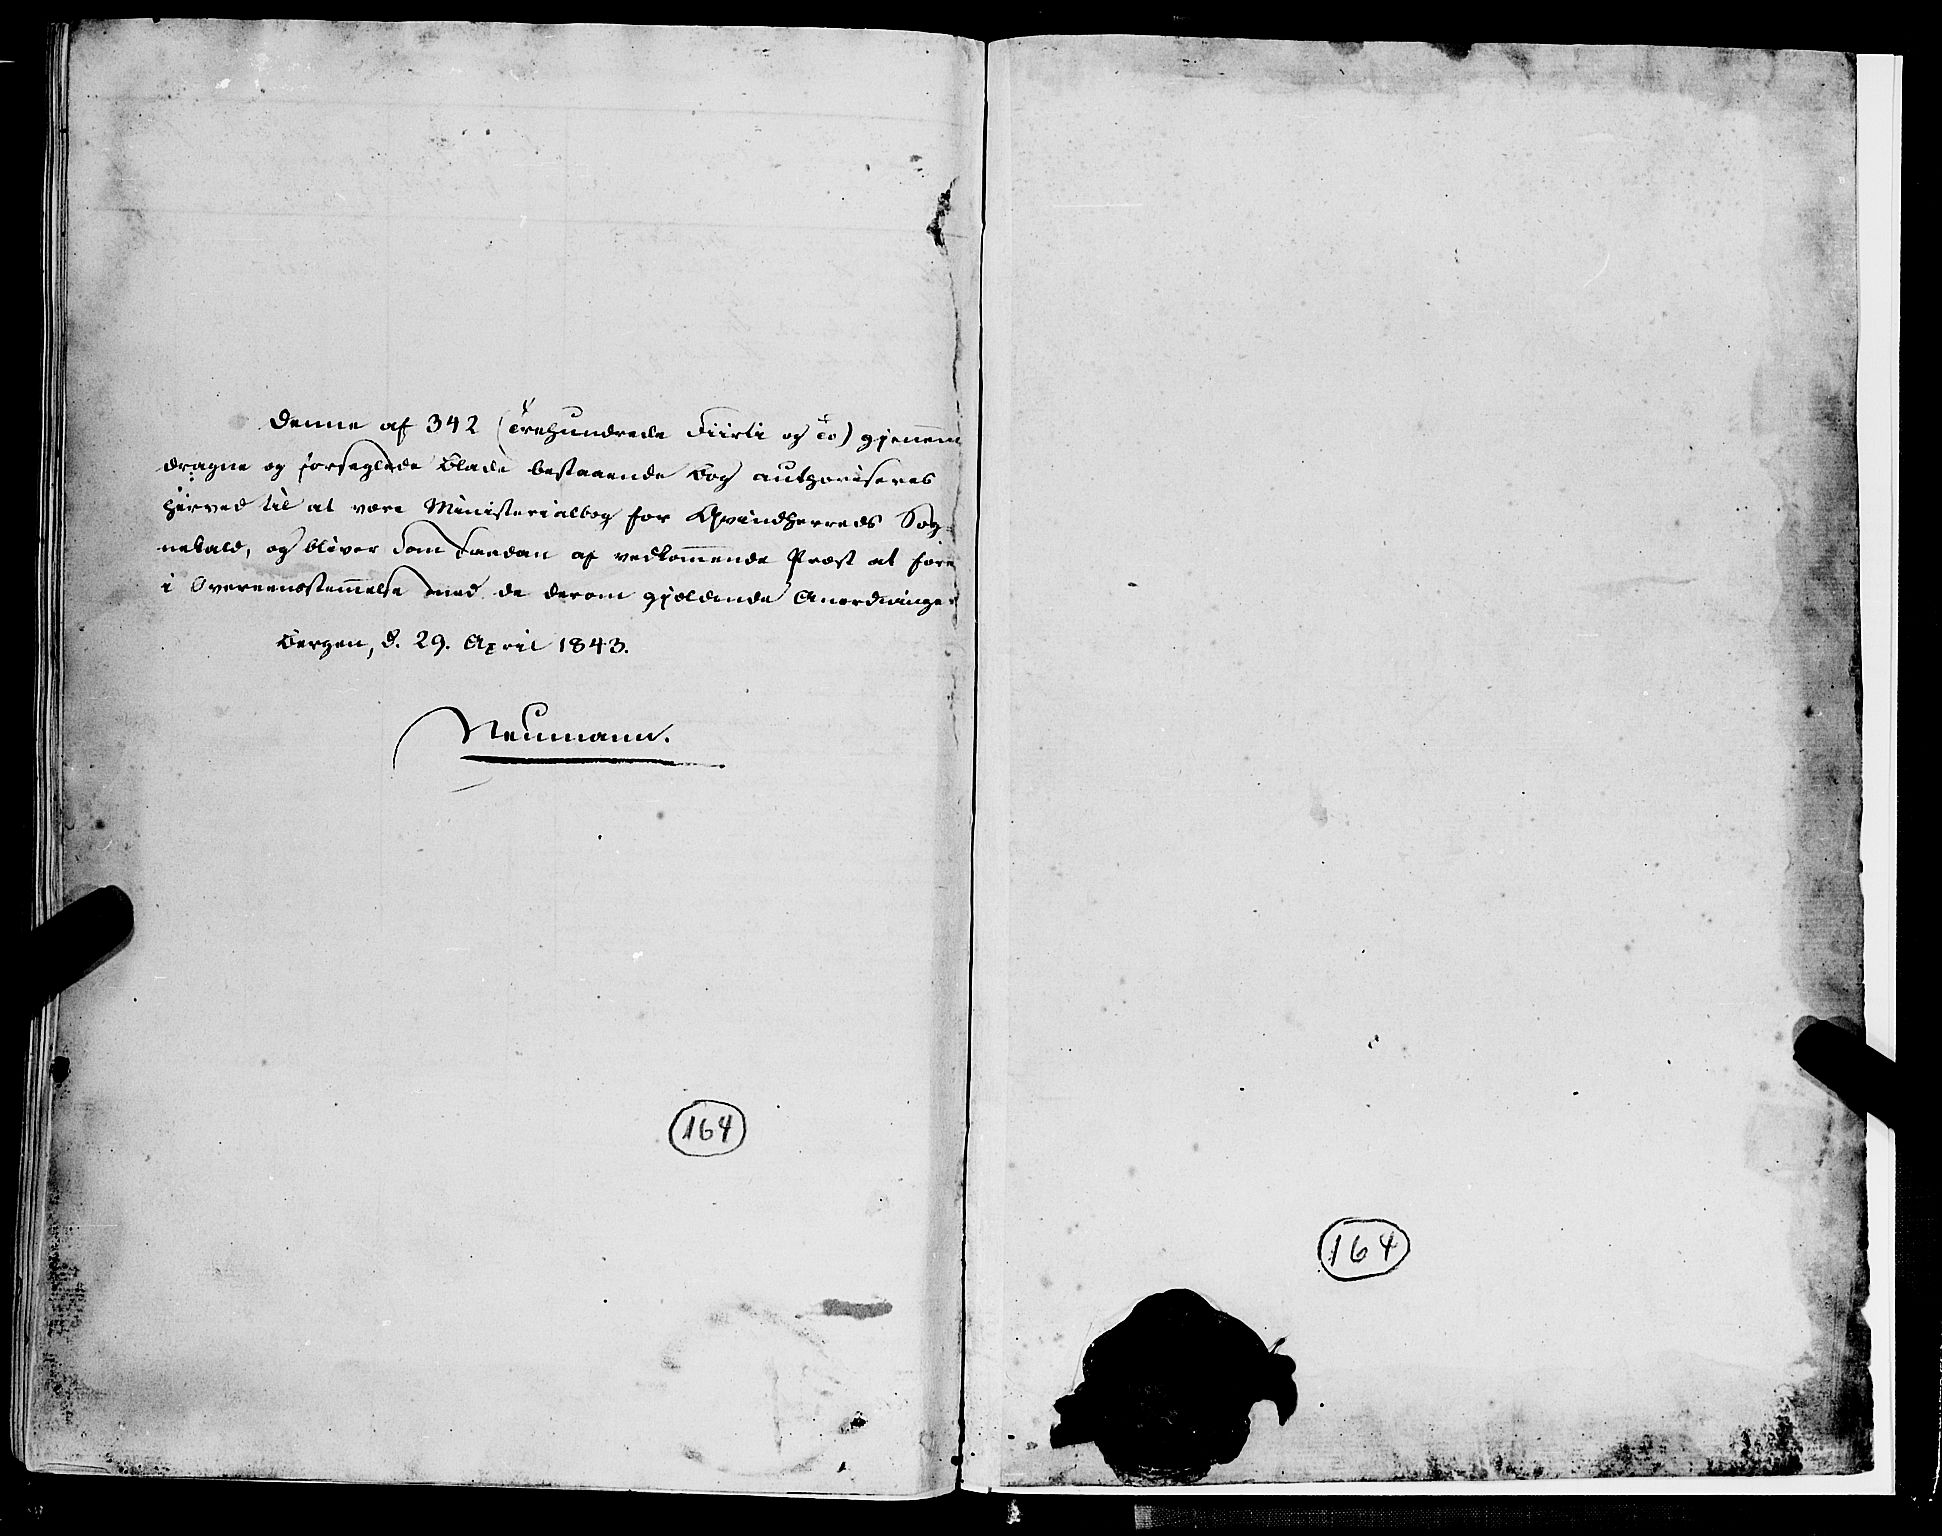 Denne af 342 (Trehundrede Fiirti og To) gjennem
dragne og forseglede Blade bestaaende Bog authoriseres
herved til at være Ministerialbog for Qvindherreds Sog-
nekald, og bliver som saadan af vedkommende Præst at føre
i Overeensstemmelse med de derom gjældende Anordninger
Bergen, d. 29. April 1843.
Neumann.
164
164